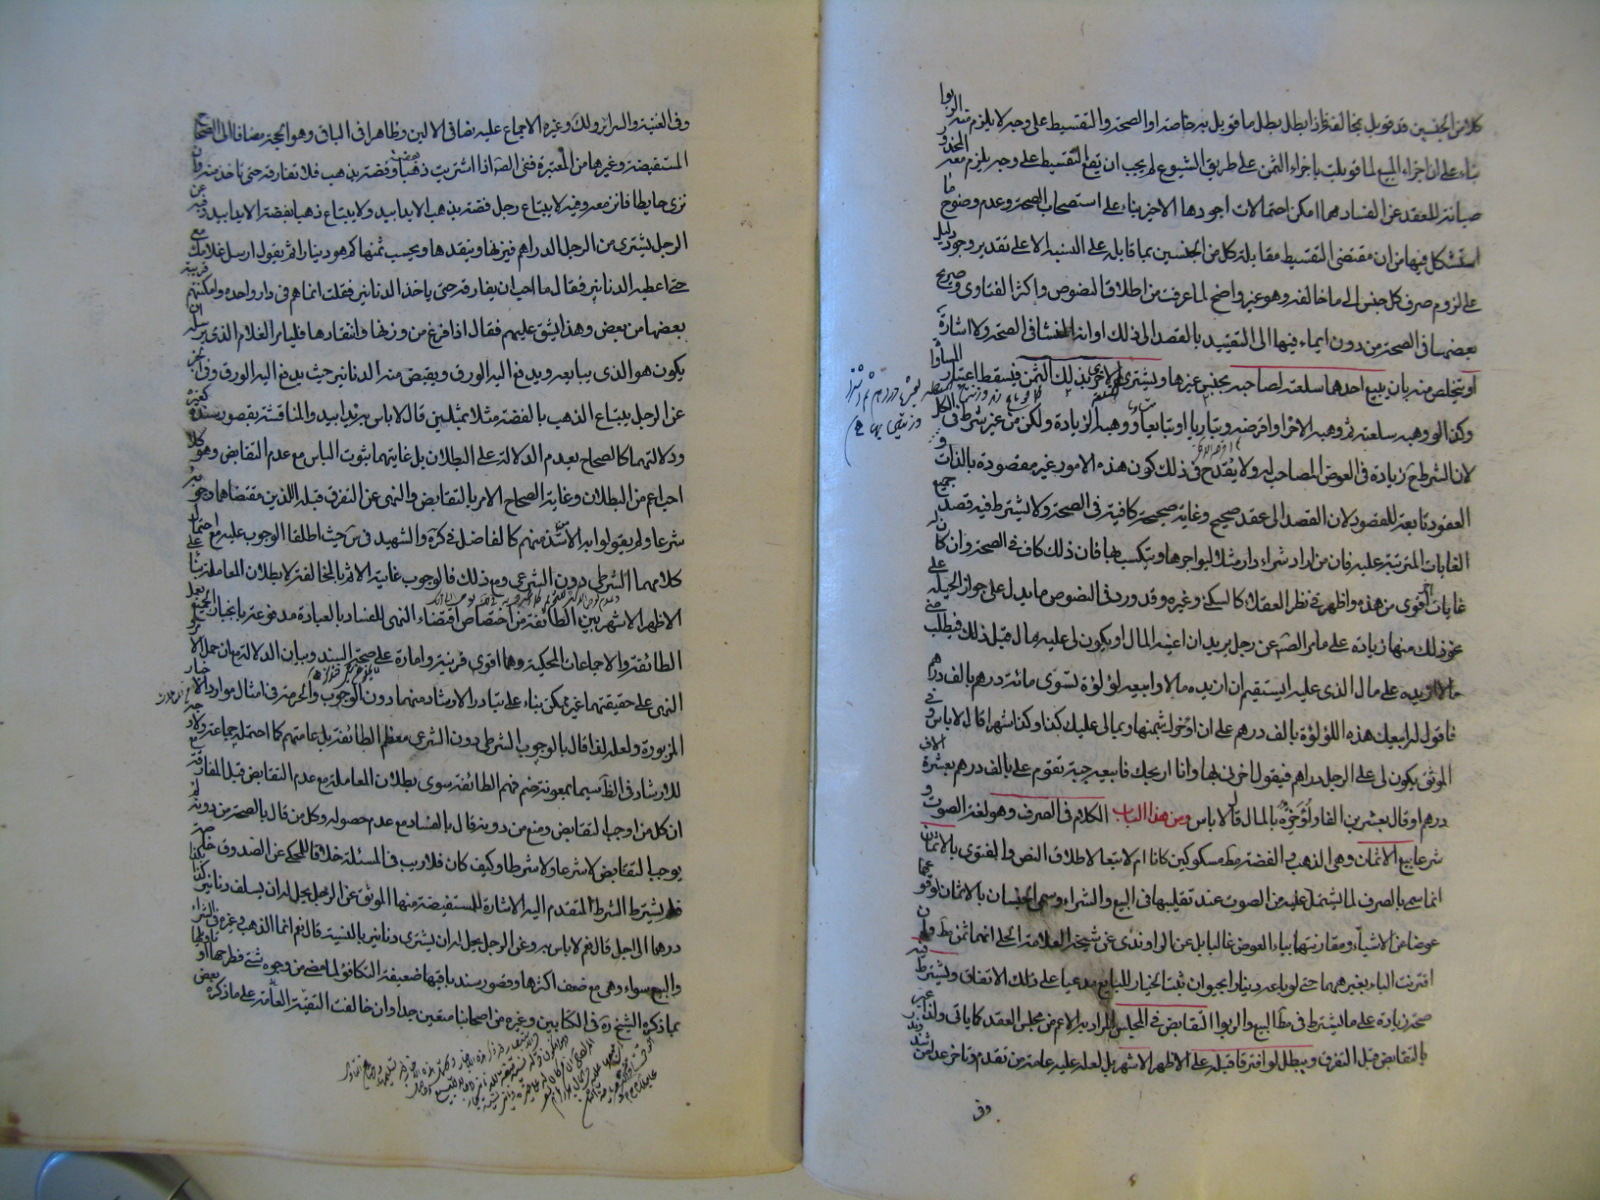 كلا من الجنسين قد قوبل بمخالفه فاذا بطل بطل ما قوبل به خاصة او الصحة والتقسيط على وجه لا يلزم منه الربوا
بناء على ان اجزاء المبيع لما قوبلت باجزاء الثمن على طريق الشيوع لم يجب ان يقع التقسيط على وجه يلزم معه المحذور
صيانة للعقد عن الفساد مهما امكن احتمالات اجودها الاخير بناء على استصحاب الصحة وعدم وضوح ما
استشكل فيها من ان مقتضى التقسيط مقابلة كل من الجنسين بما قابله على النسبة لا على تقدير وجود دليل
على لزوم صرف كل جنس الى ما خالفه وهو غير واضح لما عرفت من اطلاق النصوص واكثر الفتاوى وصريح
بعضها في الصحة من دون ايماء فيها الى التقييد بالقصد الى ذلك او انه المنشا في الصحة ولا اشارة
او يتخلص منه بان يبيع احدهما سلعته لصاحبه بجنس غيرها ويشترى الاخرى بذلك الثمن فيسقط اعتبار المساواة
وكذا لو وهبه سلعته ثم وهبه الاخر او اقرضه وتباريا او تبايعا ووهبه الزيادة ولكن من غير شرط في الكل
لان الشرط ح زيادة في العوض المصاحب له ولا يقدح في ذلك كون هذه الامور غير مقصودة بالذات و
العقود تابعة للقصود لان القصد الى عقد صحيح وغاية صحيحة كافية في الصحة ولا يشترط فيه قصد جميع
الغايات المترتبة عليه فان من اراد شراء دار مثلا ليواجرها ويتكسب بها فان ذلك كاف في الصحة وان كان له
غايات اخر اقوى من هذه واظهر في نظر العقلاء كالسكنى وغيره وقد ورد في النصوص ما يدل على جواز الحيلة على
نحو ذلك منها زيادة على ما مر الصحيح عن رجل يريد ان اعينه المال او يكون لى عليه مال قبل ذلك فيطلب منى
مالا ازيده على مالى الذى عليه ايستقيم ان ازيده مالا وابيعه لؤلؤة تسوى مائة درهم بالف درهم
فاقول له ابيعك هذه اللؤلؤة بالف درهم على ان اوخرك بثمنها وبمالى عليك كذا وكذا شهرا قال لا باس وفى
الموثق يكون لى على الرجل دراهم فيقول اخرنى بها وانا اربحك فابيعه جبة تقوم على بالف درهم بعشرة الاف
درهم او قال بعشرين الفا واؤخره بالمال قال لا باس ومن هذا الباب الكلام في الصرف وهو لغة الصوت و
شرعا بيع الاثمان وهى الذهب والفضة مط مسكوكين كانا ام لا تبعا لاطلاق النص والفتوى بالاثمان
انما سمى بالصرف لما يشتمل عليه من الصوت عند تقليبها في البيع والشراء وسمى الجنسان بالاثمان لوقوعهما
عوضا عن الاشياء ومقارنتها بباء العوض غالبا بل عن الراوندى عن شيخنا العلامة الحلى انهما ثمن مط وان
اقترنت الباء بغيرهما حتى لو باعه دينارا بحيوان ثبت الخيار للبايع مدعيا على ذلك الاتفاق ويشترط فيه
صحة زيادة على ما يشترط في مط البيع والربوا التقابض في المجلس المراد به الاعم من مجلس العقد كما ياتى ولذا عبر
بالتقابض قبل التفرق ويبطل لو افترقا قبله على الاظهر الاشهر بل لعله عليه عامة من تقدم وتاخر عدا من شذ وندر
وفى
وفى الغنية والسرائر ولك وغيره الاجماع عليه نصا في الاولين وظاهرا في الباقى وهو الحجة مضافا الى الصحاح
المستفيضة وغيرها من المعتبرة ففى الصحيح اذا اشتريت ذهبا بفضة او فضة بذهب فلا تفارقه حتى تاخذ منه وان
نزى حايطا فانز معه وفيه لا يبتاع رجل فضة بذهب الا يدا بيد ولا يبتاع ذهبا بفضة الا يدا بيد وفيه عن
الرجل يشترى من الرجل الدراهم فيزنها وينقدها ويحسب ثمنها كم هو دينارا ثم يقول ارسل غلامك معى
حتى اعطيه الدنانير فقال ما احب ان يفارقه حتى ياخذ الدنانير فقلت انما هم في دار واحدة وامكنتهم قريبة
بعضها من بعض وهذا يشق عليهم فقال اذا فرغ من وزنها وانتقادها فليامر الغلام الذى يرسله ان
يكون هو الذى يبايعه ويدفع اليه الورق ويقبض منه الدنانير حيث يدفع اليه الورق وفى اخر
عن الرجل يبتاع الذهب بالفضة مثلا بمثلين قال لا باس به يدا بيد والمناقشة بقصور سنده كغيره
ودلالتهما كالصحاح بعدم الدلالة على البطلان بل غايتهما ثبوت الباس مع عدم التقابض وهو كلا
اجراء من البطلان وغاية الصحاح الامر بالتقابض والنهى عن التفرق قبله اللذين مقتضاهما وجوبه
شرعا ولم يقولوا به الا شذ منهم كالفاضل في كره والشهيد في س حيث اطلقا الوجوب عليه مع احتمال
كلامهما الشرطى دون الشرعى ومع ذلك فالوجوب غايته الاثم بالمخالفة لا بطلان المعاملة بناء على
الاظهر الاشهر بين الطائفة من اختصاص اقتضاء النهى للفساد بالعبادة مدفوعة بانجبار الجميع بعمل
الطائفة والاجماعات المحكية وهما اقوى قرينة وامارة على صحة السند وبيان الدلالة مع ان حمل الامر و
النهى على حقيقتهما غير ممكن بناء على تبادر الارشاد منهما دون الوجوب والحرمة في امثال موارد الاخبار
المزبورة ولعله لذا قال بالوجوب الشرطى دون الشرعى معظم الطائفة بل عامتهم كما احتمله جماعة ولا وجه
للارشاد في الظ سيما بمعونة ضم فهم الطائفة سوى بطلان المعاملة مع عدم التقابض قبل المفارقة مع
ان كل من اوجب التقابض ومنع من دونه قال بالفساد مع عدم حصوله وكل من قال بالصحة من دونه لم
يوجب التقابض لا شرعا ولا شرطا وكيف كان فلا ريب في المسئلة خلافا للمحكى عن الصدوق خاصة
فلم يشترط الشرط المتقدم اليه الاشارة للمستفيضة منها الموثق عن الرجل يحل له ان يسلف دنانير بكذا وكذا
درهما الى اجل قال نعم لا باس به وعن الرجل يحل له ان يشترى دنانير بالنسية قال نعم انما الذهب وغيره في الشراء
والبيع سواء وهى مع ضعف اكثرها وقصور سند باقيها ضعيفة التكافؤ لما مضى من وجوه شتى فطرحها او تاويلها
بما ذكره الشيخ ره في الكتابين وغيره من اصحابنا متعين جدا وان خالفت التقية العامة على ما ذكره بعض